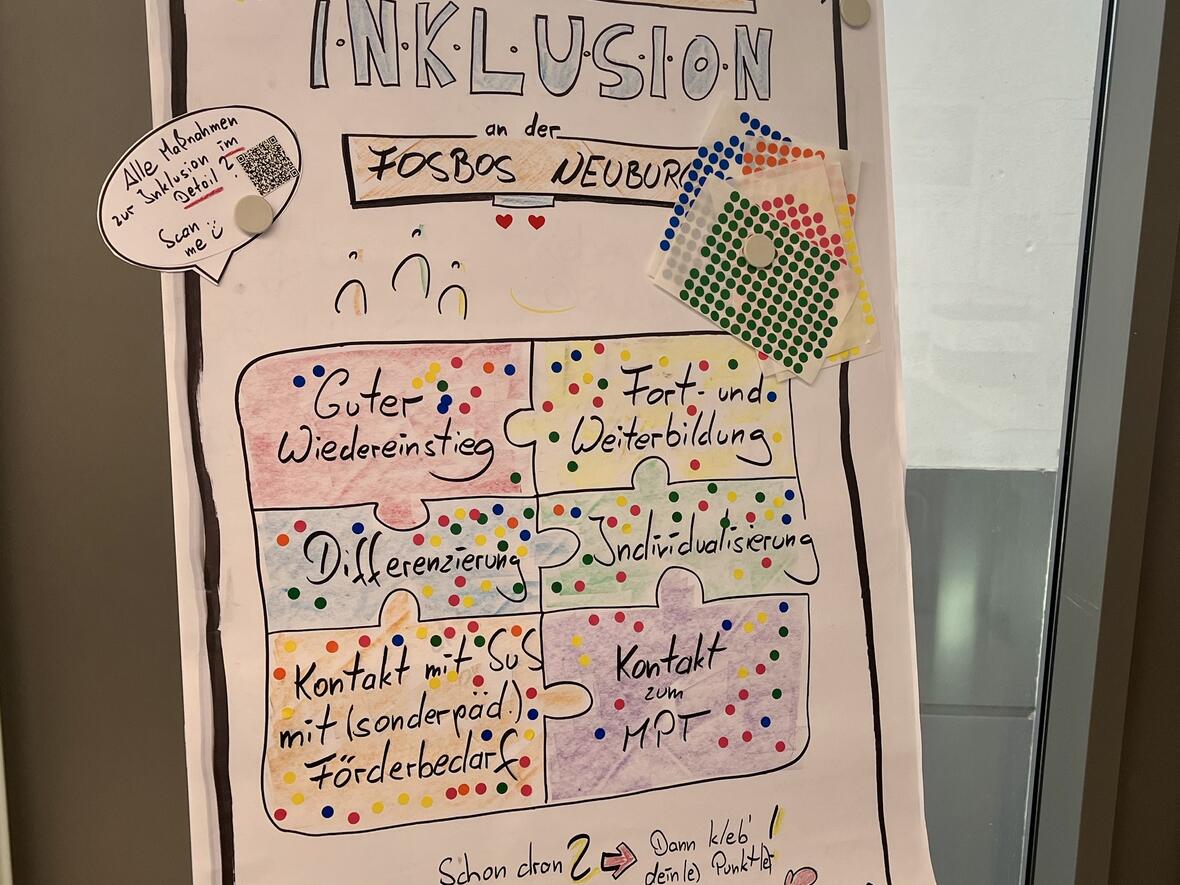 I·N·K·L·U·S·I·O·N
an der
FOSBOS NEUBURG
Alle Maßnahmen
zur Inklusion im
Detail ?
Scan
me
Guter
Wiedereinstieg
Fort- und
Weiterbildung
Differenzierung
Individualisierung
Kontakt mit SuS
mit (sonderpäd.)
Förderbedarf
Kontakt
zum
MPT
Schon dran?
Dann kleb'
dein(e) Punkt(e)!